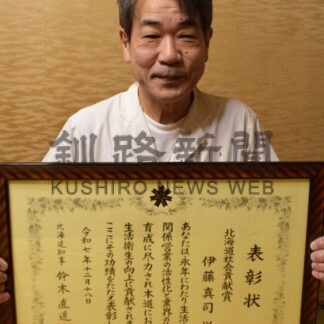 釧路新聞
KUSHIRO NEWS WEB
表彰状
北海道社会貢献賞
伊藤真司
あなたは永年にわたり生活
関係営業の活性化と業界の
育成に尽力され本道にお
生活衛生の向上に貢献されま
ここにその功績をたたえ表彰し
令和七年十二月十八日
北海道知事 鈴木直道